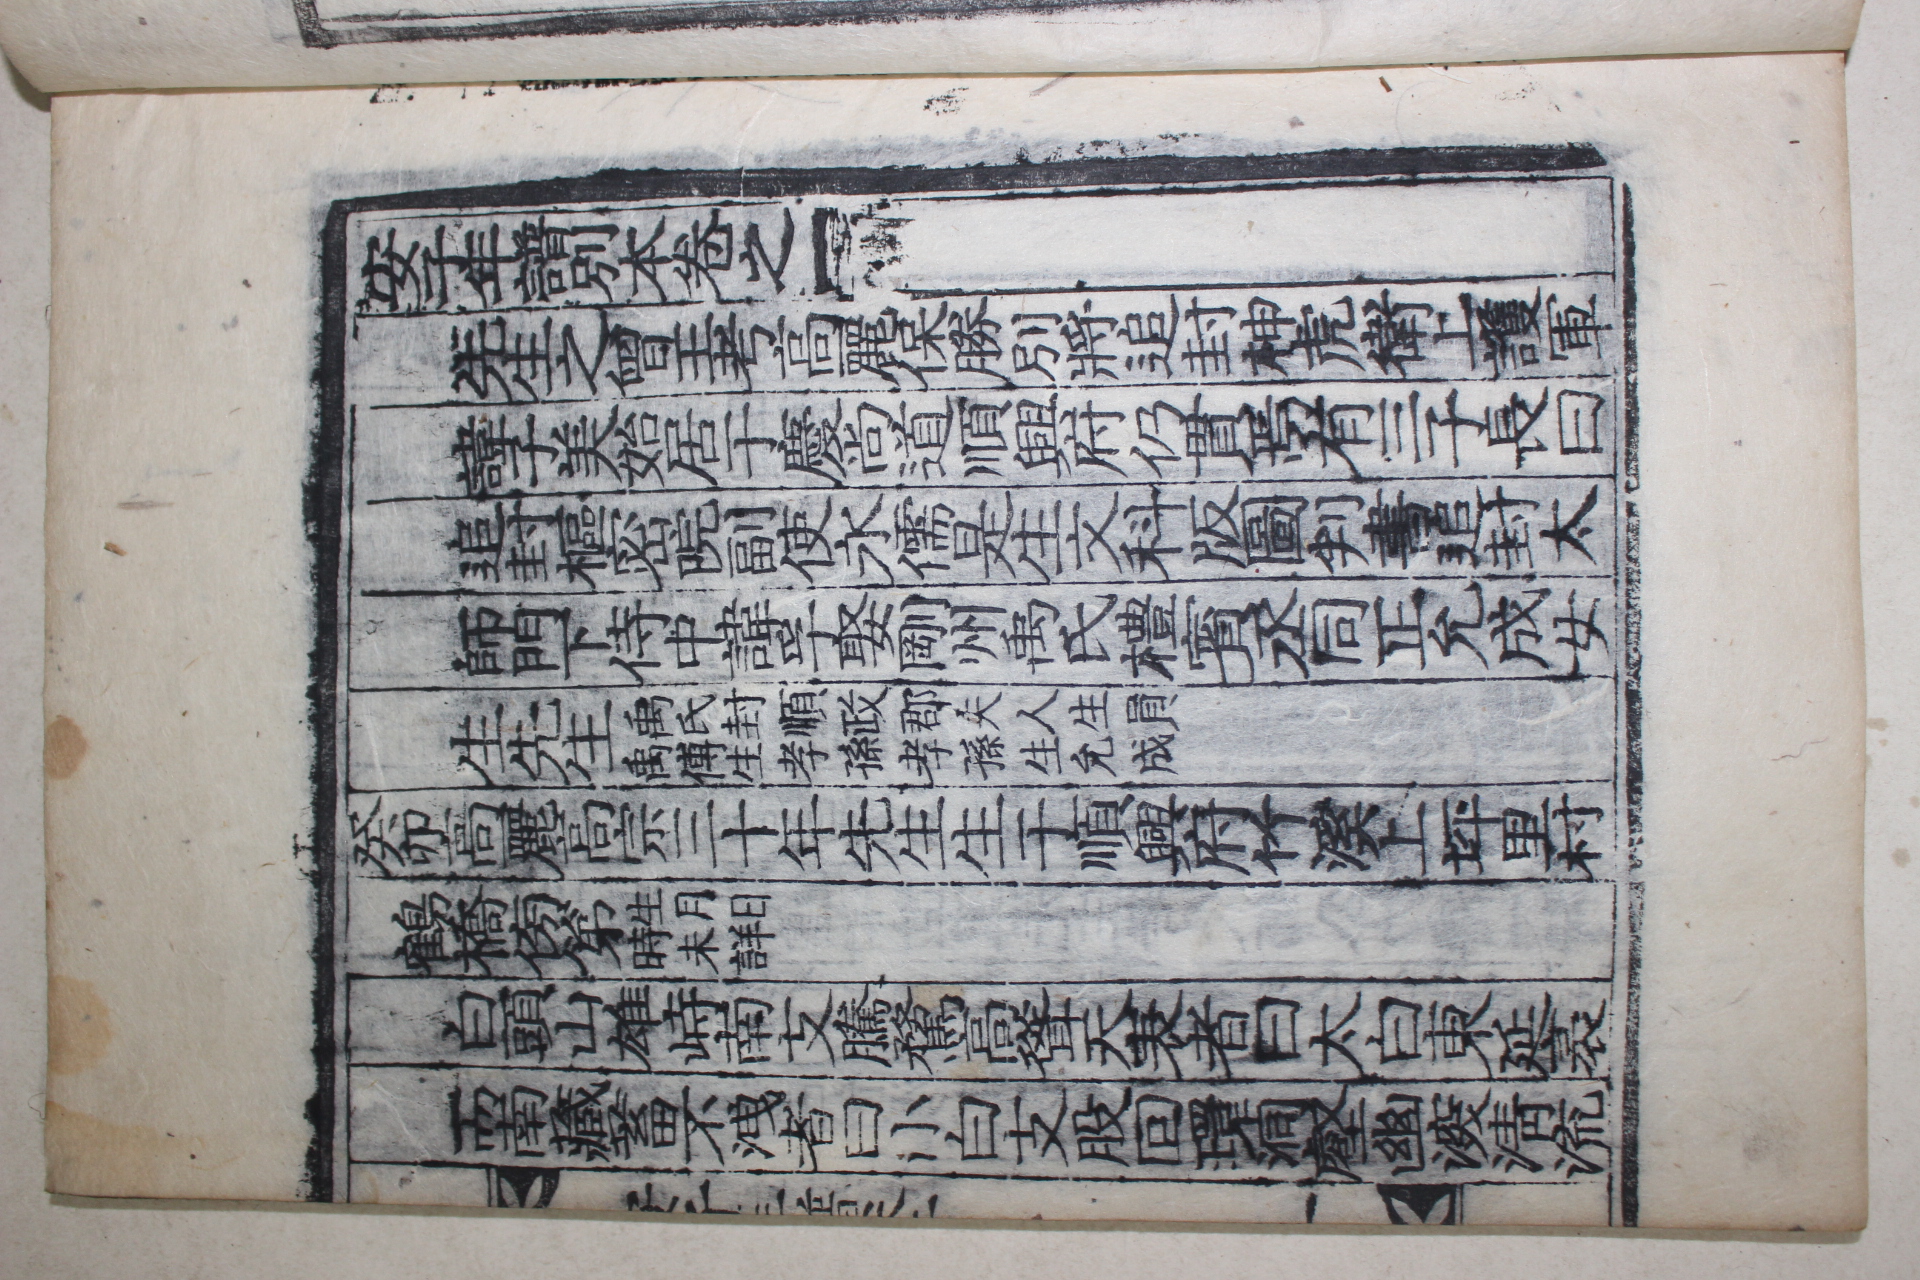 安子年譜別本卷之一
先生之曾王考高麗保勝別將追封神虎衛上護軍
諱子美始居于慶尚道順興府仍貫焉有三子長曰
追封樞密院副使永儒是生文科版圖判書追封太
師門下侍中諱孚娶剛州禹氏禮賓丞同正允成女
生先生
禹氏封順政郡夫人生員
禹傅生孝孫孝孫生允成
癸卯高麗高宗三十年先生生于順興府竹溪上坪里村
鶴橋傍第
生月日
時未詳
白頭山雄峙南支騰騖高聳天表者曰太白東延袤
而南藏蓄不洩者曰小白支股回環洞壑幽深淸流